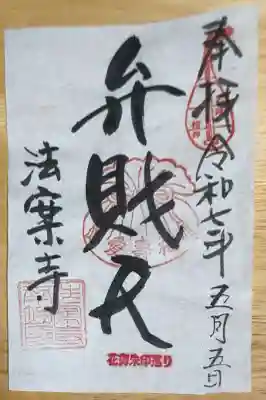 奉拝
令和七年五月五日
弁財天
法案寺
花御朱印巡り